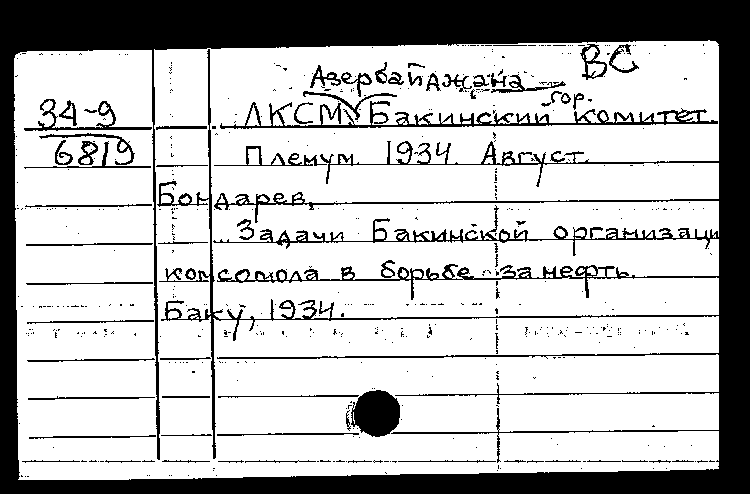 ВС
Азербайджана
34-9 ЛКСМ Бакинский гор. комитет.
6819 Пленум. 1934. Август.
Бондарев,
Задачи Бакинской организаци
комсомола в борьбе за нефть.
Баку, 1934.